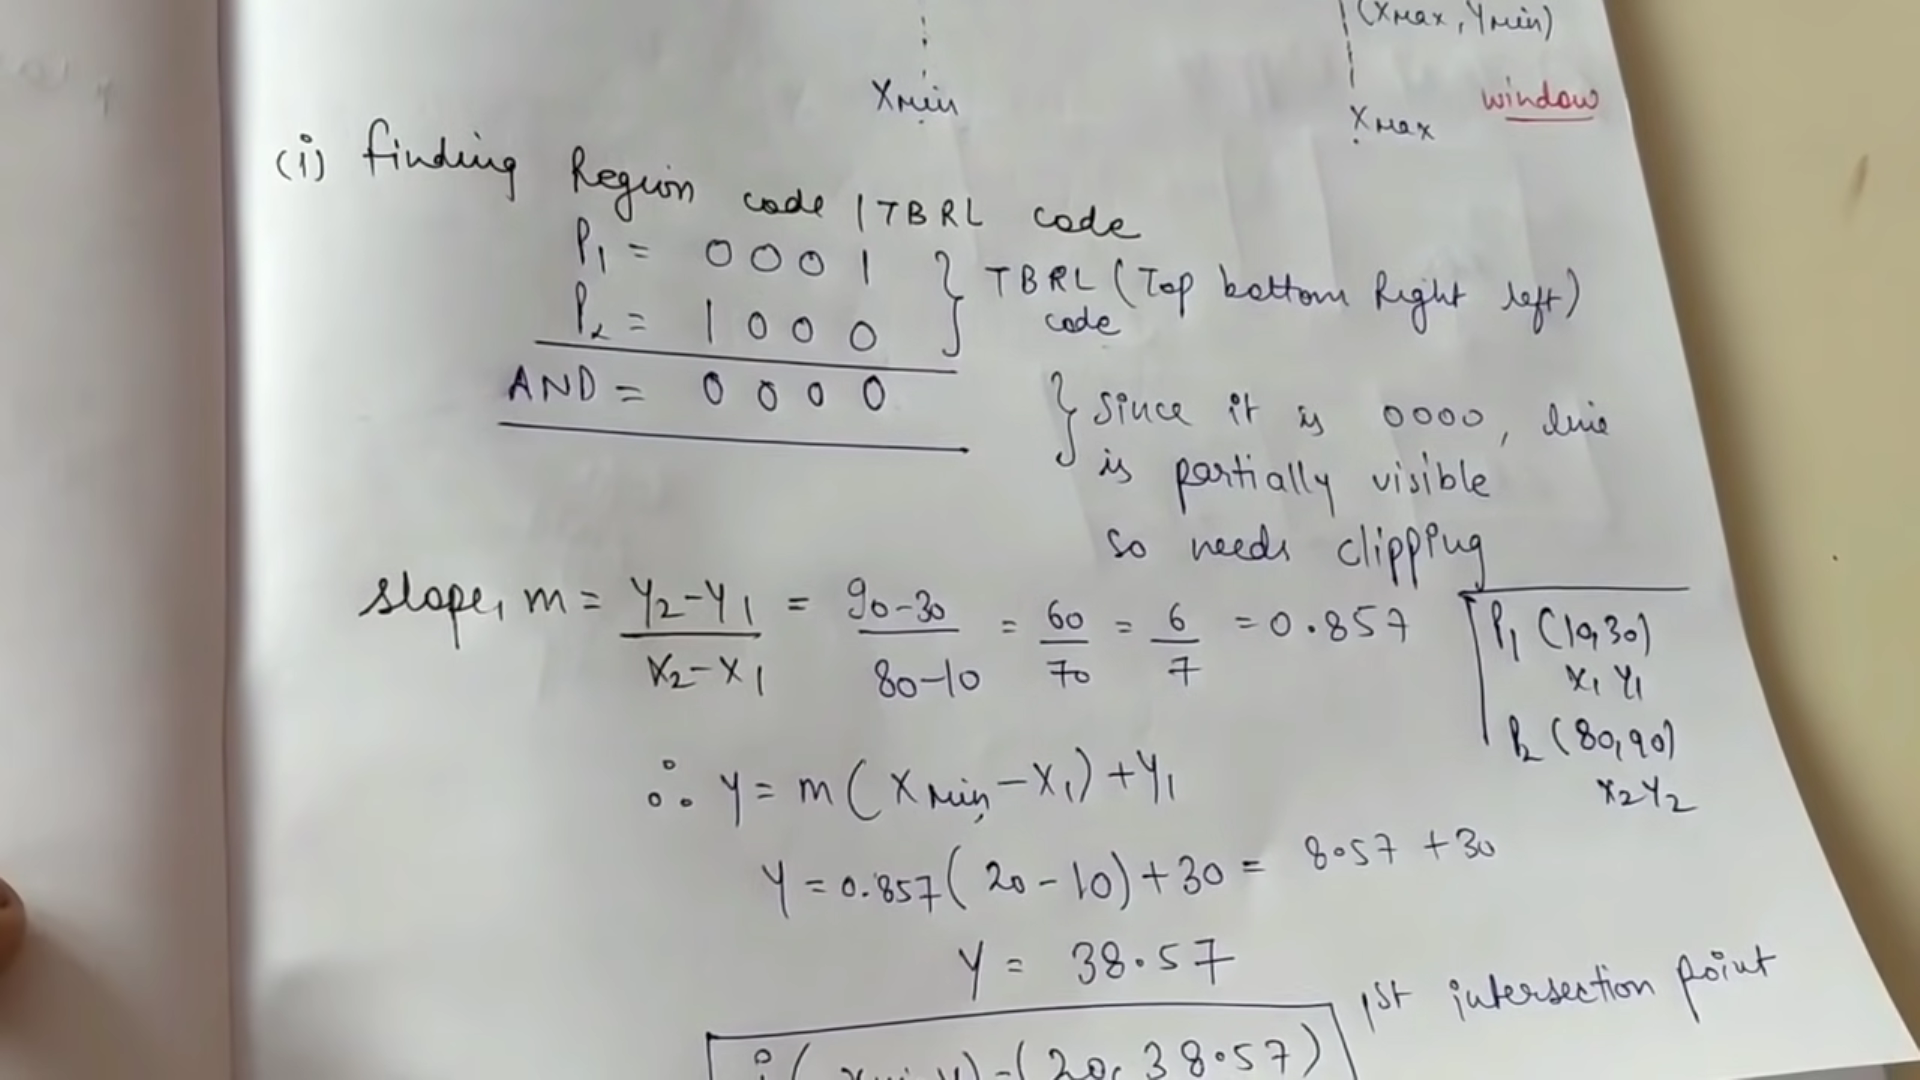 (Xmax, Ymin)
Xmin
Xmax
window
(i) finding Region code | TBRL code
P1 = 0 0 0 1 } TBRL (Top bottom Right left) code
P2 = 1 0 0 0
AND = 0 0 0 0 } Since it is 0000, line
is partially visible
so needs clipping
slope, m = Y2-Y1 / X2-X1 = 90-30 / 80-10 = 60/70 = 6/7 = 0.857
P1 (10,30)
X1 Y1
P2 (80,90)
X2 Y2
∴ Y = m(Xmin - X1) + Y1
Y = 0.857(20-10)+30 = 8.57 + 30
Y = 38.57
i(xmin, y) = (20, 38.57) 1st intersection point